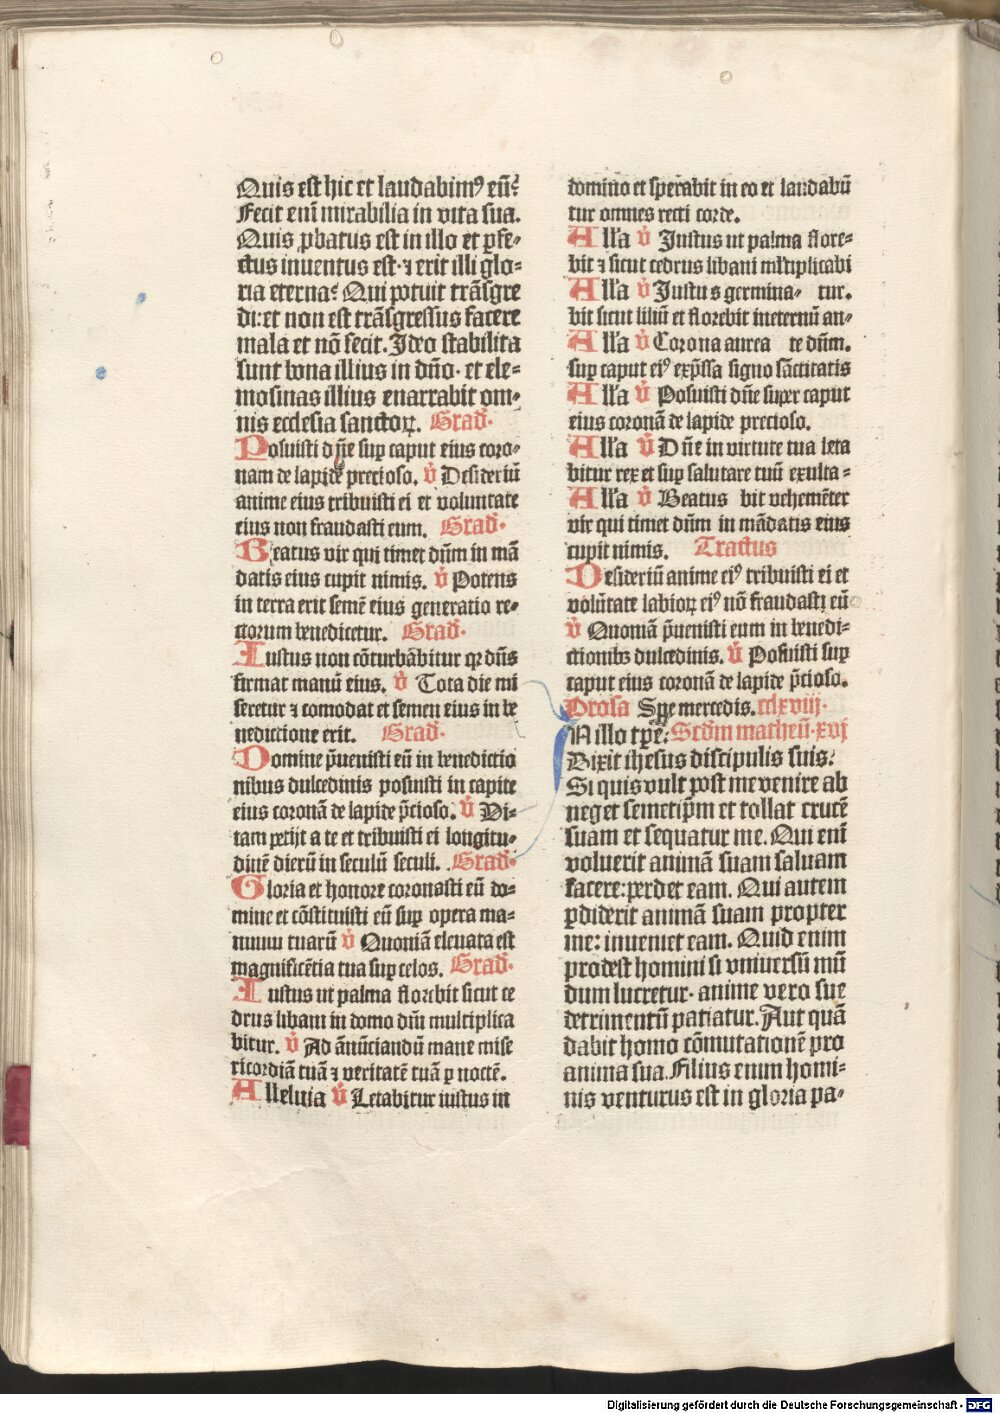 Quis est hic et laudabimꝰ eū?
Fecit eni mirabilia in vita sua.
Quis ꝓbatus est in illo et ꝑfe⸗
ctus inuentus est·⁊ erit illi glo⸗
ria eterna? Qui potuit trāsgre
di:et non est trāsgressus facere
mala et nō fecit. Ideo stabilita
sunt bona illius in dn̄o· et ele⸗
mosinas illius enarrabit om⸗
nis ecclesia sanctoꝝ. Grad̄·
Posuisti dn̄e suꝑ caput eius coro⸗
nam de lapide precioso. v̄ Desideriū
anime eius tribuisti ei et voluntate
eius non fraudasti eum. Grad̄·
Beatus vir qui timet dn̄m in mā
datis eius cupit nimis. v̄ Potens
in terra erit semē eius generatio re⸗
ctorum benedicetur. Grad̄·
Iustus non cōturbābitur qꝛ dn̄s
firmat manū eius. v̄ Tota die mi
seretur ⁊ comodat et semen eius in be
nedictione erit. Grad̄·
Domine p̄uenisti eū in benedictio
nibus dulcedinis posuisti in capite
eius coronā de lapide p̄cioso. v̄ Vi⸗
tam petijt a te et tribuisti ei longitu⸗
dinē dierū in seculū seculi. Grad̄·
Gloria et honore coronasti eū do⸗
mine et cōstituisti eū suꝑ opera ma⸗
nuum tuarū v̄ Quoniā eleuata est
magnificētia tua suꝑ celos. Grad̄·
Iustus ut palma florebit sicut ce
drus libani in domo dn̄i multiplica
bitur. v̄ Ad ānūciandū mane mise
ricordiā tuā ⁊ veritatē tuā ꝑ noctē.
Alleluia v̄ Letabitur iustus in
domino et sperabit in eo et laudabū
tur omnes recti corde.
All'a v̄ Iustus ut palma flore⸗
bit ⁊ sicut cedrus libani ml̄tiplicabi
All'a v̄ Iustus germina⸗ tur.
bit sicut liliū et florebit ineternū an⸗
All'a v̄ Corona aurea te dn̄m.
suꝑ caput eiꝰ exp̄ssa signo sāctitatis
All'a v̄ Posuisti dn̄e super caput
eius coronā de lapide precioso.
All'a v̄ Dn̄e in virtute tua leta
bitur rex et suꝑ salutare tuū exulta⸗
All'a v̄ Beatus bit vehemēter
vir qui timet dn̄m in mādatis eius
cupit nimis. Tractus
Desideriū anime eiꝰ tribuisti ei et
volūtate labioꝝ eiꝰ nō fraudasti eū
v̄ Quoniā p̄uenisti eum in benedi⸗
ctionibꝫ dulcedinis. v̄ Posuisti suꝑ
caput eius coronā de lapide p̄cioso.
Prosa Spe mercedis. cclxviij·
N illo tꝑe: Scdm matheū·xvj
Dixit ihesus discipulis suis:
Si quis vult post me venire ab
neget semetip̄m et tollat crucē
suam et sequatur me. Qui eni
voluerit animā suam saluam
facere:perdet eam. Qui autem
ꝑdiderit animā suam propter
me: inueniet eam. Quid enim
prodest homini si vniuersū mū
dum lucretur· anime vero sue
detrimentū patiatur. Aut quā
dabit homo cōmutationē pro
anima sua. Filius enim homi⸗
nis venturus est in gloria pa⸗
Digitalisierung gefördert durch die Deutsche Forschungsgemeinschaft · DFG